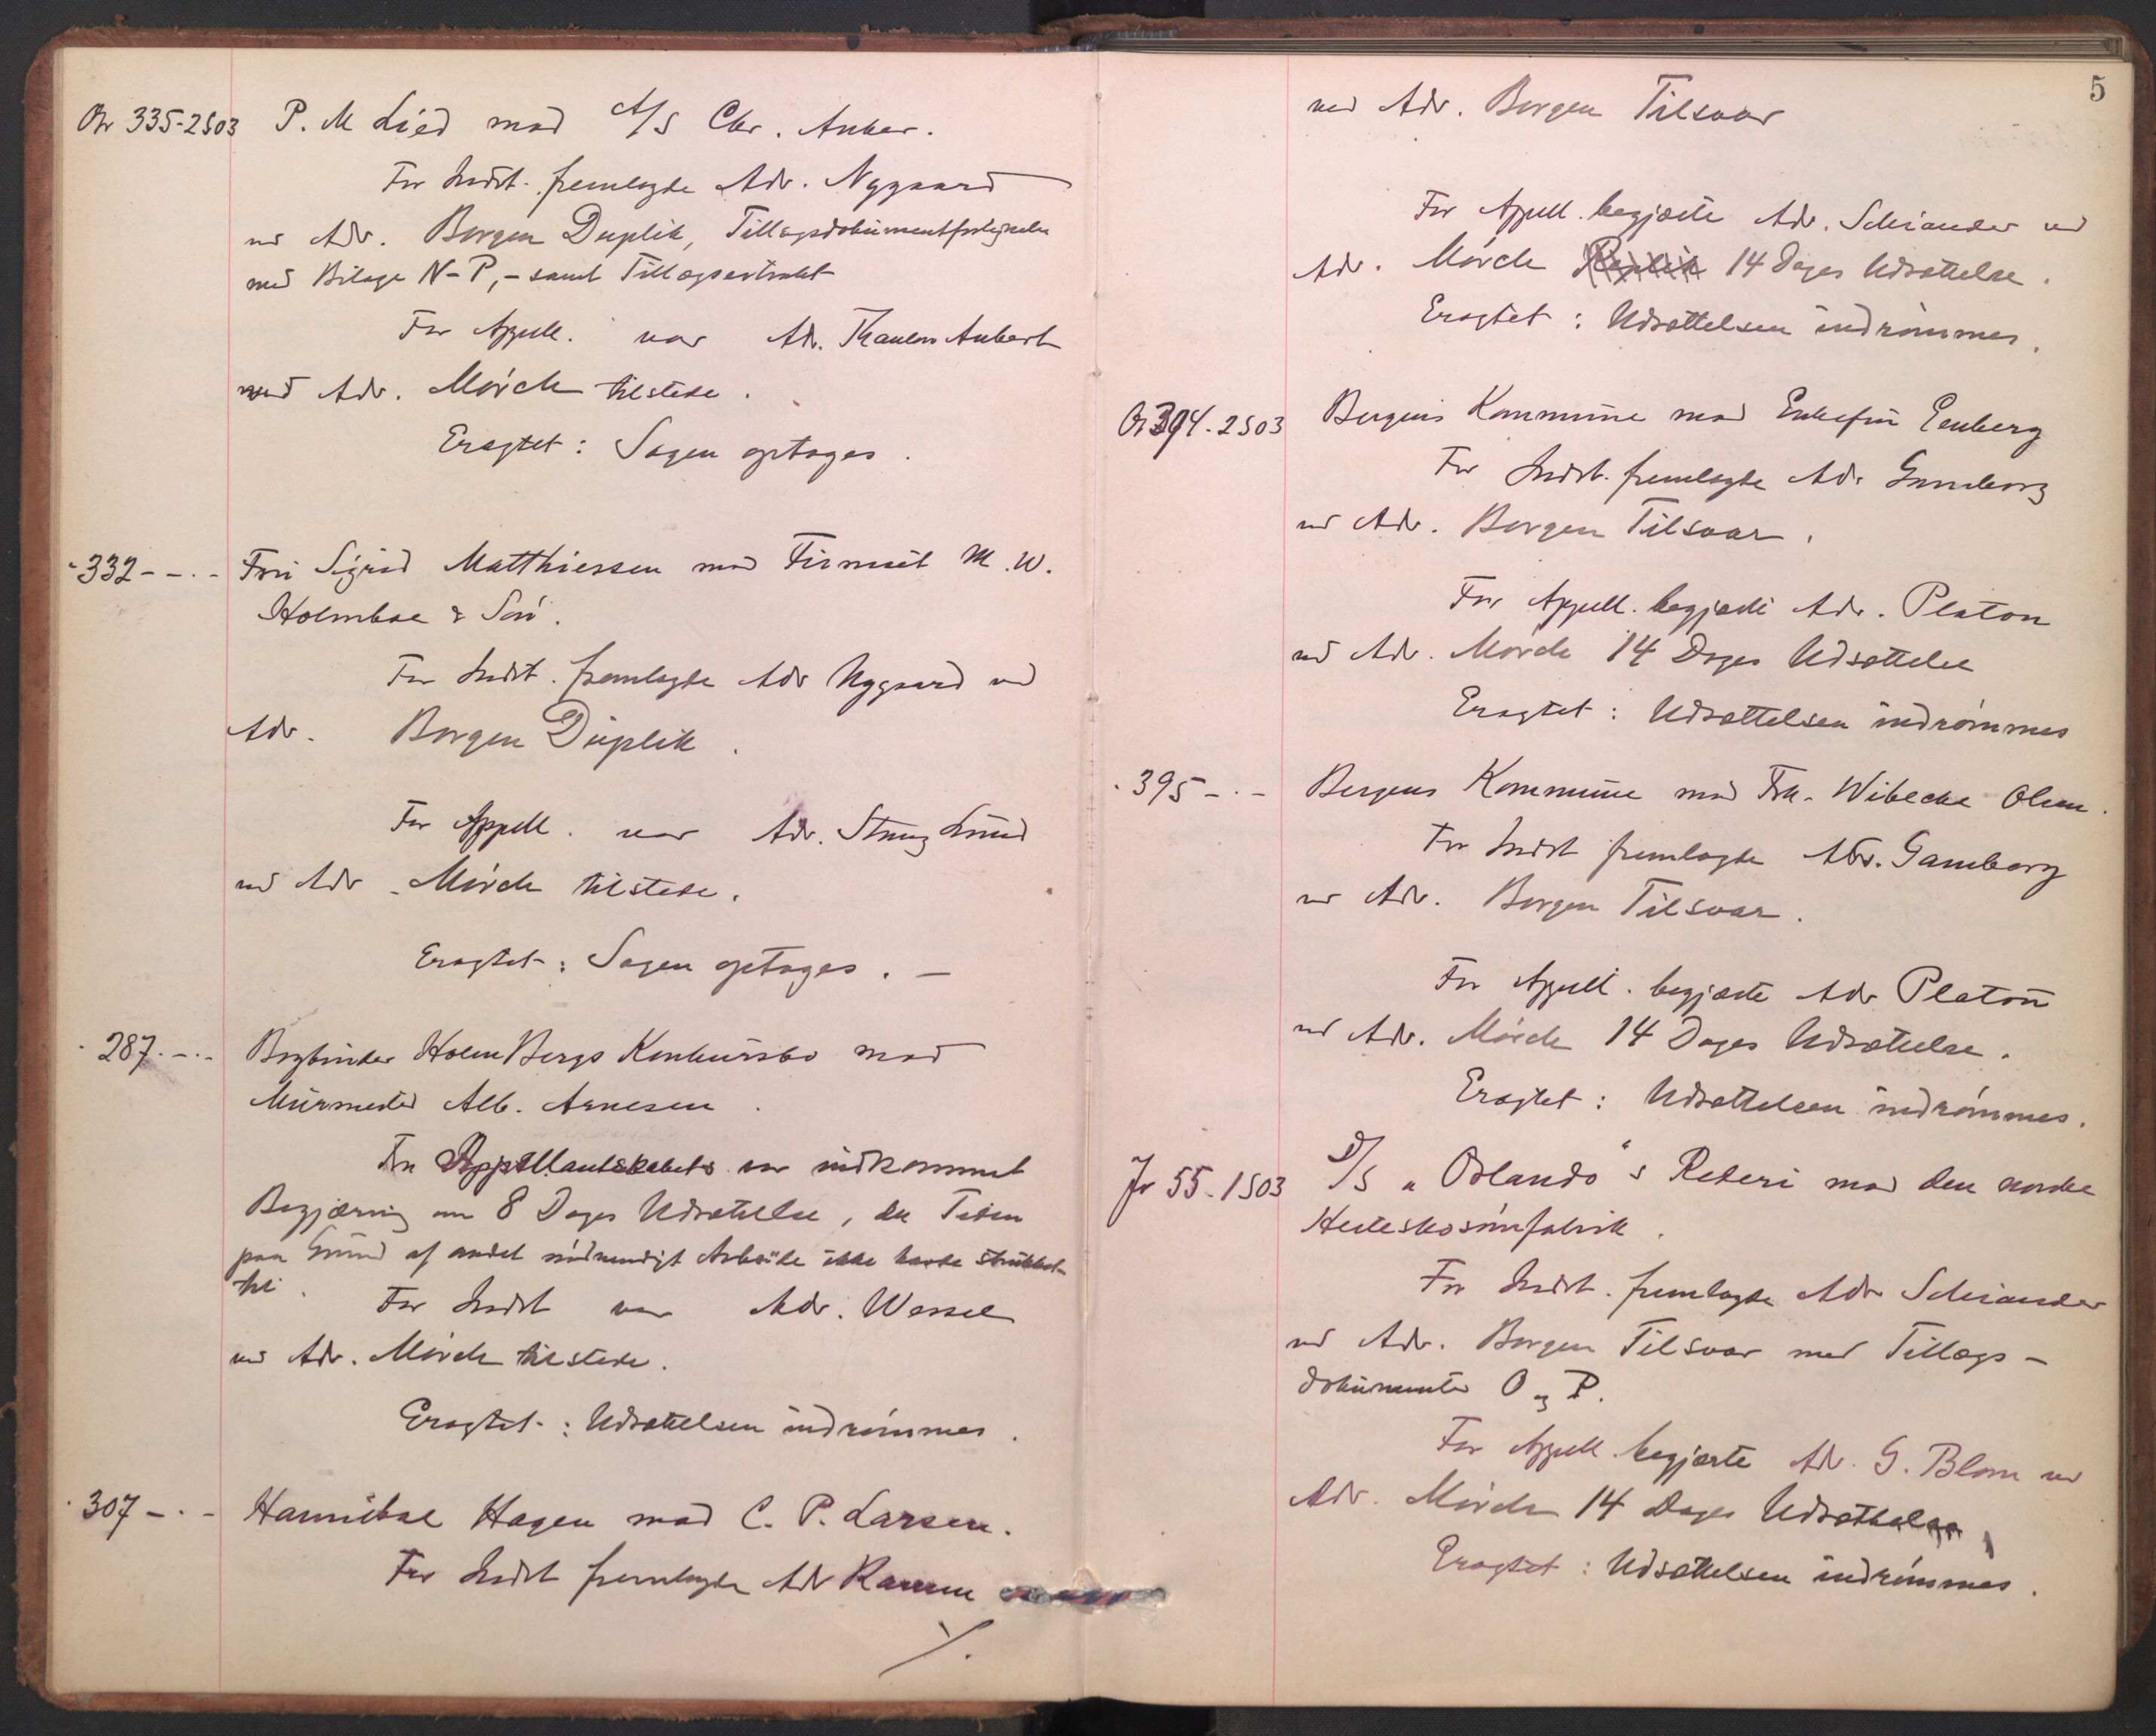 Or 335-2S03 P. M Lied mod A/S Chr. Anker.
For Indst. fremlagde Adv. Nygaard
ved Adv. Borgen Duplik, Tillægsdokumentfortegnelse
med Bilage N-P, - samt Tillægsextrakt
For Appell. var Adv. Thaulow Aubert
ved Adv. Mörch tilstede.
Eragtet: Sagen optages.
"332 - - . - Fru Sigrid Matthiessen mod Firmaet M. W.
Holmboe & Sön.
For Indst. fremlagde Adv Nygaard ved
Adv. Borgen Duplik.
For Appell. var Adv. Stang Lund
ved Adv. Mörch tilstede.
Eragtet: Sagen optages. -
" 287. - . - Bogbinder Holm Bergs Konkursbo mod
Murmester Alb. Arnesen.
Fra Appellantskabets var indkommet
Begjæring om 8 Dages Udsættelse, da Tiden
paa Grund af andet nödvendigt Arbeide ikke havde strukket
til.
For Indst var Adv. Wessel
ved Adv. Mörch tilstede.
Eragtet: Udsættelsen indrömmes.
" 307 - . - Hannibal Hagen mod C. P. Larsen.
For Indst fremlagde Adv Ramm
./.
5
ved Adv. Borgen Tilsvar
For Appell. begjærte Adv. Schiander ved
Adv. Mörch Replik 14 Dages Udsættelse.
Eragtet: Udsættelsen indrömmes.
Or 394-2S03 Bergens Kommune mod Enkefru
For Indst. fremlagde Adv. Gamborg
ved Adv. Borgen Tilsvar.
For Appell. begjærte Adv. Platou
ved Adv. Mörch 14 Dages Udsættelse
Eragtet: Udsættelsen indrömmes
" 395 - . - Bergens Kommune mod Frk. Wibecke Olsen.
For Indst fremlagde Adv. Gamborg
ved Adv. Borgen Tilsvar.
For Appell. begjærte Adv Platou
ved Adv. Mörch 14 Dages Udsættelse.
Eragtet: Udsættelsen indrömmes.
Jr 55-1S03 D/S "Orlando"s Rederi mod den norske
Hesteskosömfabrik.
For Indst. fremlagde Adv Schiander
ved Adv. Borgen Tilsvar med Tillægs-
dokumenter O og P.
For Appell. begjærte Adv. G. Blom ved
Adv. Mörch 14 Dages Udsættelse,
Eragtet: Udsættelsen indrömmes.